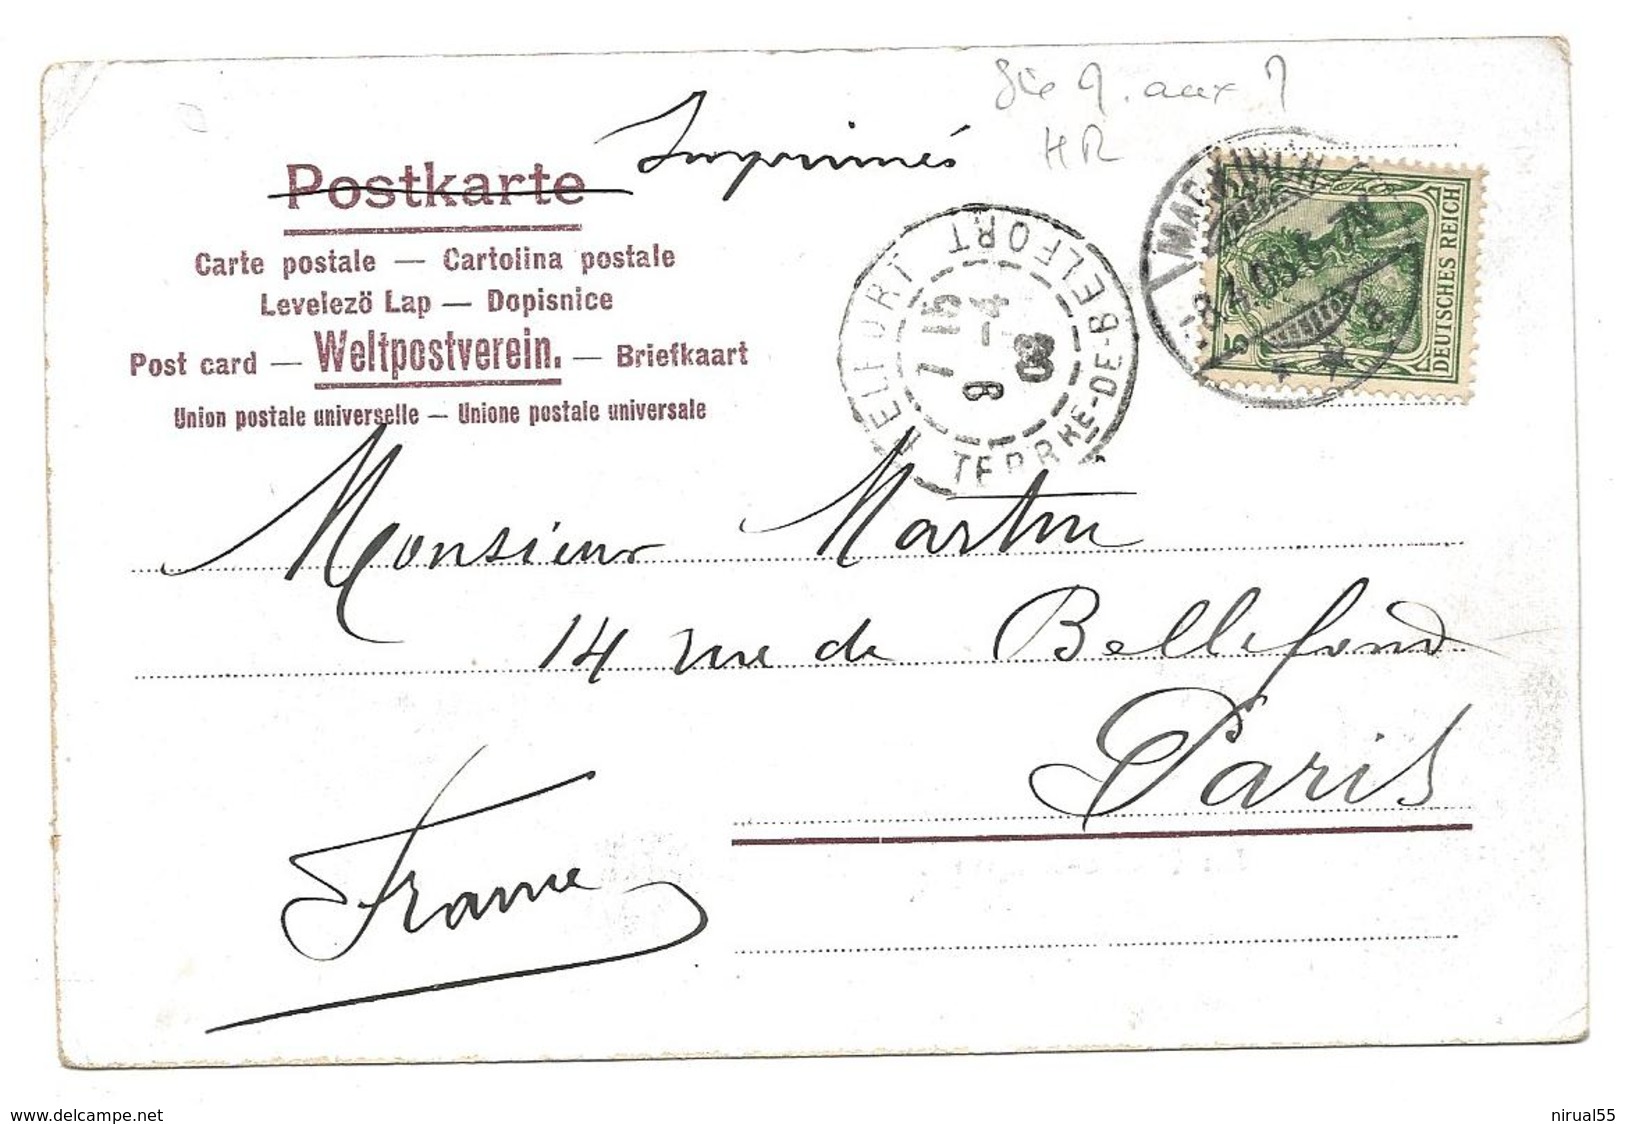 Ste M. aux M
HR
Imprimés
Postkarte
Carte postale — Cartolina postale
Levelezö Lap — Dopisnice
Post card — Weltpostverein. — Briefkaart
Union postale universelle — Unione postale universale
BELFORT TERRE-DE-BELFORT
7 15
6 -4
MARKIRCH
DEUTSCHES REICH
5
Monsieur Martin
14 rue de Bellefond
Paris
France
www.delcampe.net
nirual55